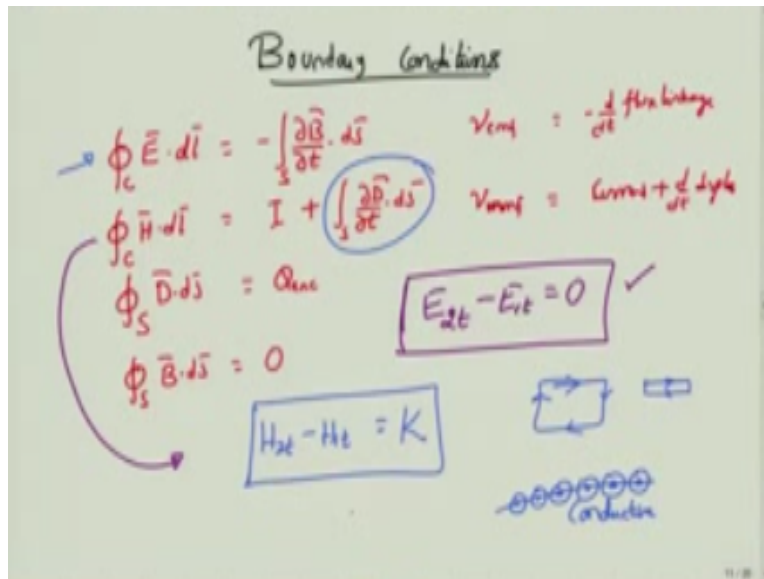 Boundary Conditions
∮_C Ē·dl̄ = -∫_S ∂B̄/∂t · ds̄
V_emf = -d/dt flux linkage
∮_C H̄·dl̄ = I + ∫_S ∂D̄/∂t · ds̄
V_mmf = + d/dt
∮_S D̄·ds̄ = Q_enc
E_2t - E_1t = 0 ✓
∮_S B̄·ds̄ = 0
H_2t - H_1t = K
Conductor